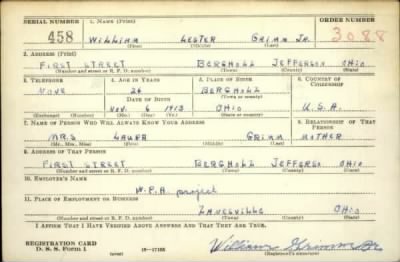 SERIAL NUMBER 1. NAME (Print) ORDER NUMBER
458 WILLIAM LESTER GRIMM JR. 3088
(First) (Middle) (Last)
2. ADDRESS (Print)
FIRST STREET BERGHOLZ JEFFERSON OHIO
(Number and street or R. F. D. number) (Town) (County) (State)
3. TELEPHONE 4. AGE IN YEARS 5. PLACE OF BIRTH 6. COUNTRY OF CITIZENSHIP
NONE 26 BERGHOLZ
DATE OF BIRTH (Town or county)
NOV. 6 1913 OHIO U.S.A.
(Exchange) (No.) (Mo.) (Day) (Yr.) (State or country)
7. NAME OF PERSON WHO WILL ALWAYS KNOW YOUR ADDRESS 8. RELATIONSHIP OF THAT PERSON
MRS LAURA GRIMM MOTHER
(Mr., Mrs., Miss) (First) (Middle) (Last)
9. ADDRESS OF THAT PERSON
FIRST STREET BERGHOLZ JEFFERSON OHIO
(Number and street or R. F. D. number) (Town) (County) (State)
10. EMPLOYER'S NAME
W.P.A. project
11. PLACE OF EMPLOYMENT OR BUSINESS
ZANESVILLE OHIO
(Number and street or R. F. D. number) (Town) (County) (State)
I AFFIRM THAT I HAVE VERIFIED ABOVE ANSWERS AND THAT THEY ARE TRUE.
REGISTRATION CARD
D. S. S. Form 1 (over) 16-17105 William Grimm Jr.
(Registrant's signature)